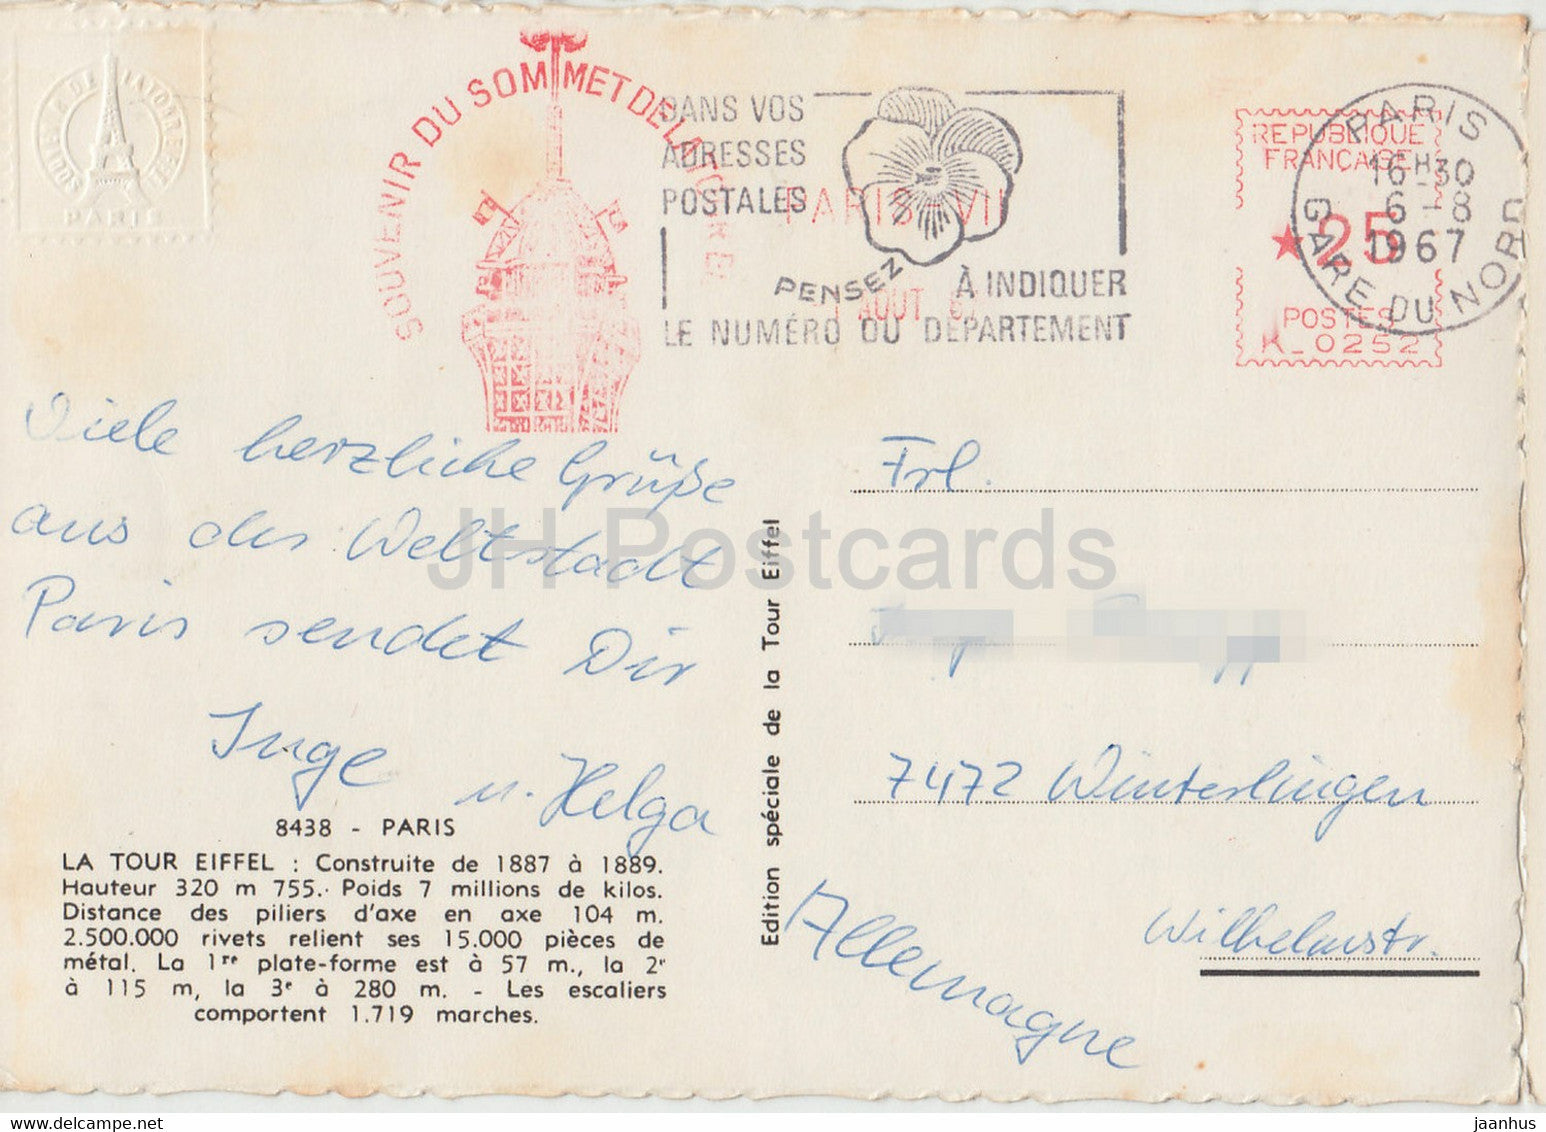 SOUVENIR DU SOMMET DE LA TOUR EIFFEL
PARIS
SOUVENIR DU SOMMET DE LA TOUR EIFFEL
DANS VOS
ADRESSES
POSTALES
PENSEZ À INDIQUER
LE NUMÉRO DU DÉPARTEMENT
PARIS VII
AOUT 67
REPUBLIQUE
FRANÇAISE
★25
POSTES
K_0252
PARIS
16H30
6-8
1967
GARE DU NORD
Viele herzliche Grüße
aus der Weltstadt
Paris sendet Dir
Inge
u. Helga
8438 - PARIS
LA TOUR EIFFEL : Construite de 1887 à 1889.
Hauteur 320 m 755. Poids 7 millions de kilos.
Distance des piliers d'axe en axe 104 m.
2.500.000 rivets relient ses 15.000 pièces de
métal. La 1re plate-forme est à 57 m., la 2e
à 115 m, la 3e à 280 m. - Les escaliers
comportent 1.719 marches.
Edition spéciale de la Tour Eiffel
Frl.
7472 Winterlingen
Wilhelmstr.
Allemagne
JH Postcards
www.delcampe.net
jaanhus